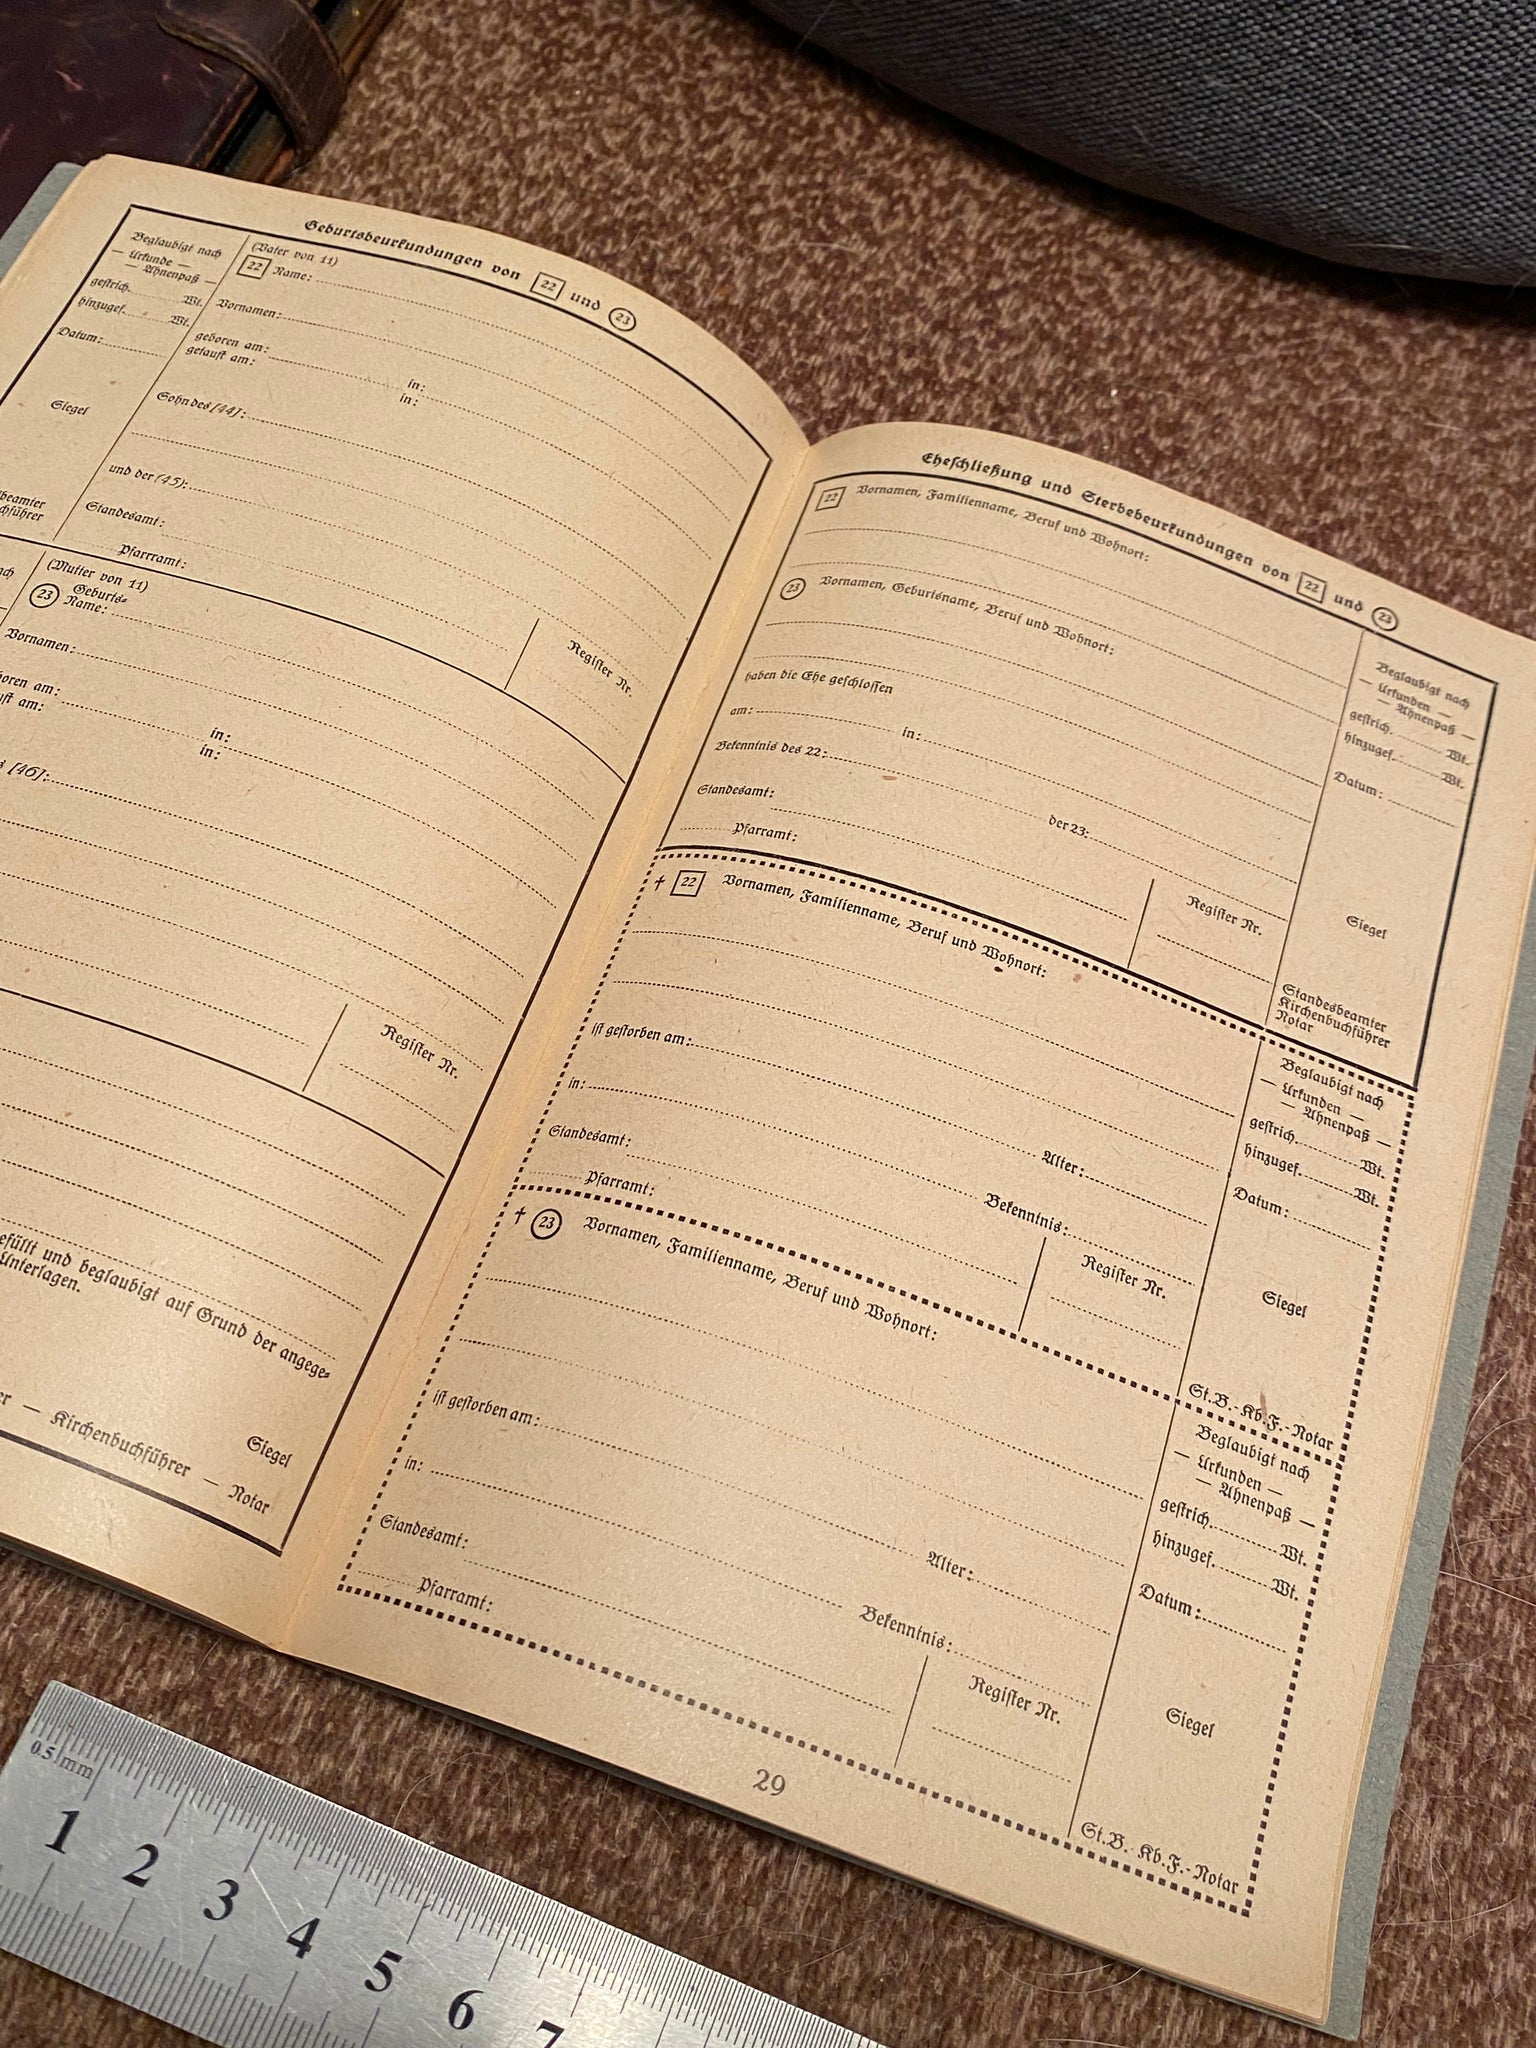 Geburtsbeurkundungen von 22 und 23
Beglaubigt nach
— Urkunde —
— Ahnenpaß —
gestrich. Wt.
hinzugef. Wt.
Datum:
Siegel
(Vater von 11)
22 Name:
Vornamen:
geboren am:
getauft am:
in:
in:
Sohn des [44]:
und der (45):
Standesamt:
Pfarramt:
Register Nr.
(Mutter von 11)
23 Geburts-
Name:
Vornamen:
in:
in:
[46]:
Register Nr.
und beglaubigt auf Grund der angege-
Unterlagen.
Siegel
— Kirchenbuchführer — Notar
Eheschließung und Sterbebeurkundungen von 22 und 23
22 Vornamen, Familienname, Beruf und Wohnort:
23 Vornamen, Geburtsname, Beruf und Wohnort:
haben die Ehe geschlossen
am: in:
Bekenntnis des 22: der 23:
Standesamt:
Pfarramt:
Register Nr.
Beglaubigt nach
— Urkunden —
— Ahnenpaß —
gestrich. Wt.
hinzugef. Wt.
Datum:
Siegel
Standesbeamter
Kirchenbuchführer
Notar
† 22 Vornamen, Familienname, Beruf und Wohnort:
ist gestorben am:
in: Alter:
Standesamt: Bekenntnis:
Pfarramt:
Register Nr.
Beglaubigt nach
— Urkunden —
— Ahnenpaß —
gestrich. Wt.
hinzugef. Wt.
Datum:
Siegel
St.B.-Kb.F.-Notar
† 23 Vornamen, Familienname, Beruf und Wohnort:
ist gestorben am:
in: Alter:
Standesamt: Bekenntnis:
Pfarramt:
Register Nr.
Beglaubigt nach
— Urkunden —
— Ahnenpaß —
gestrich. Wt.
hinzugef. Wt.
Datum:
Siegel
St.B.-Kb.F.-Notar
29
0.5 mm
1 2 3 4 5 6 7